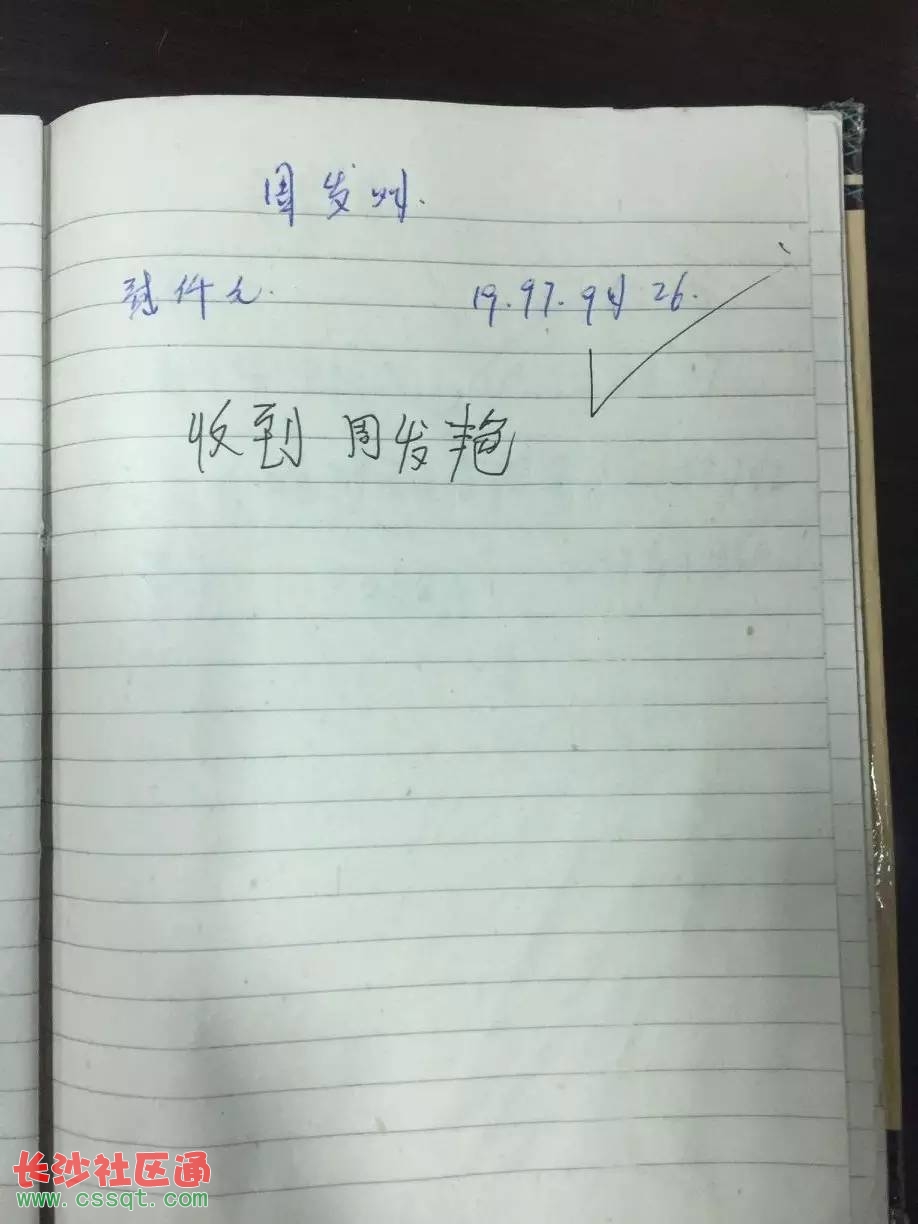 周发州.
19.97.9月26.
收到 周发艳
长沙社区通
www.cssqt.com